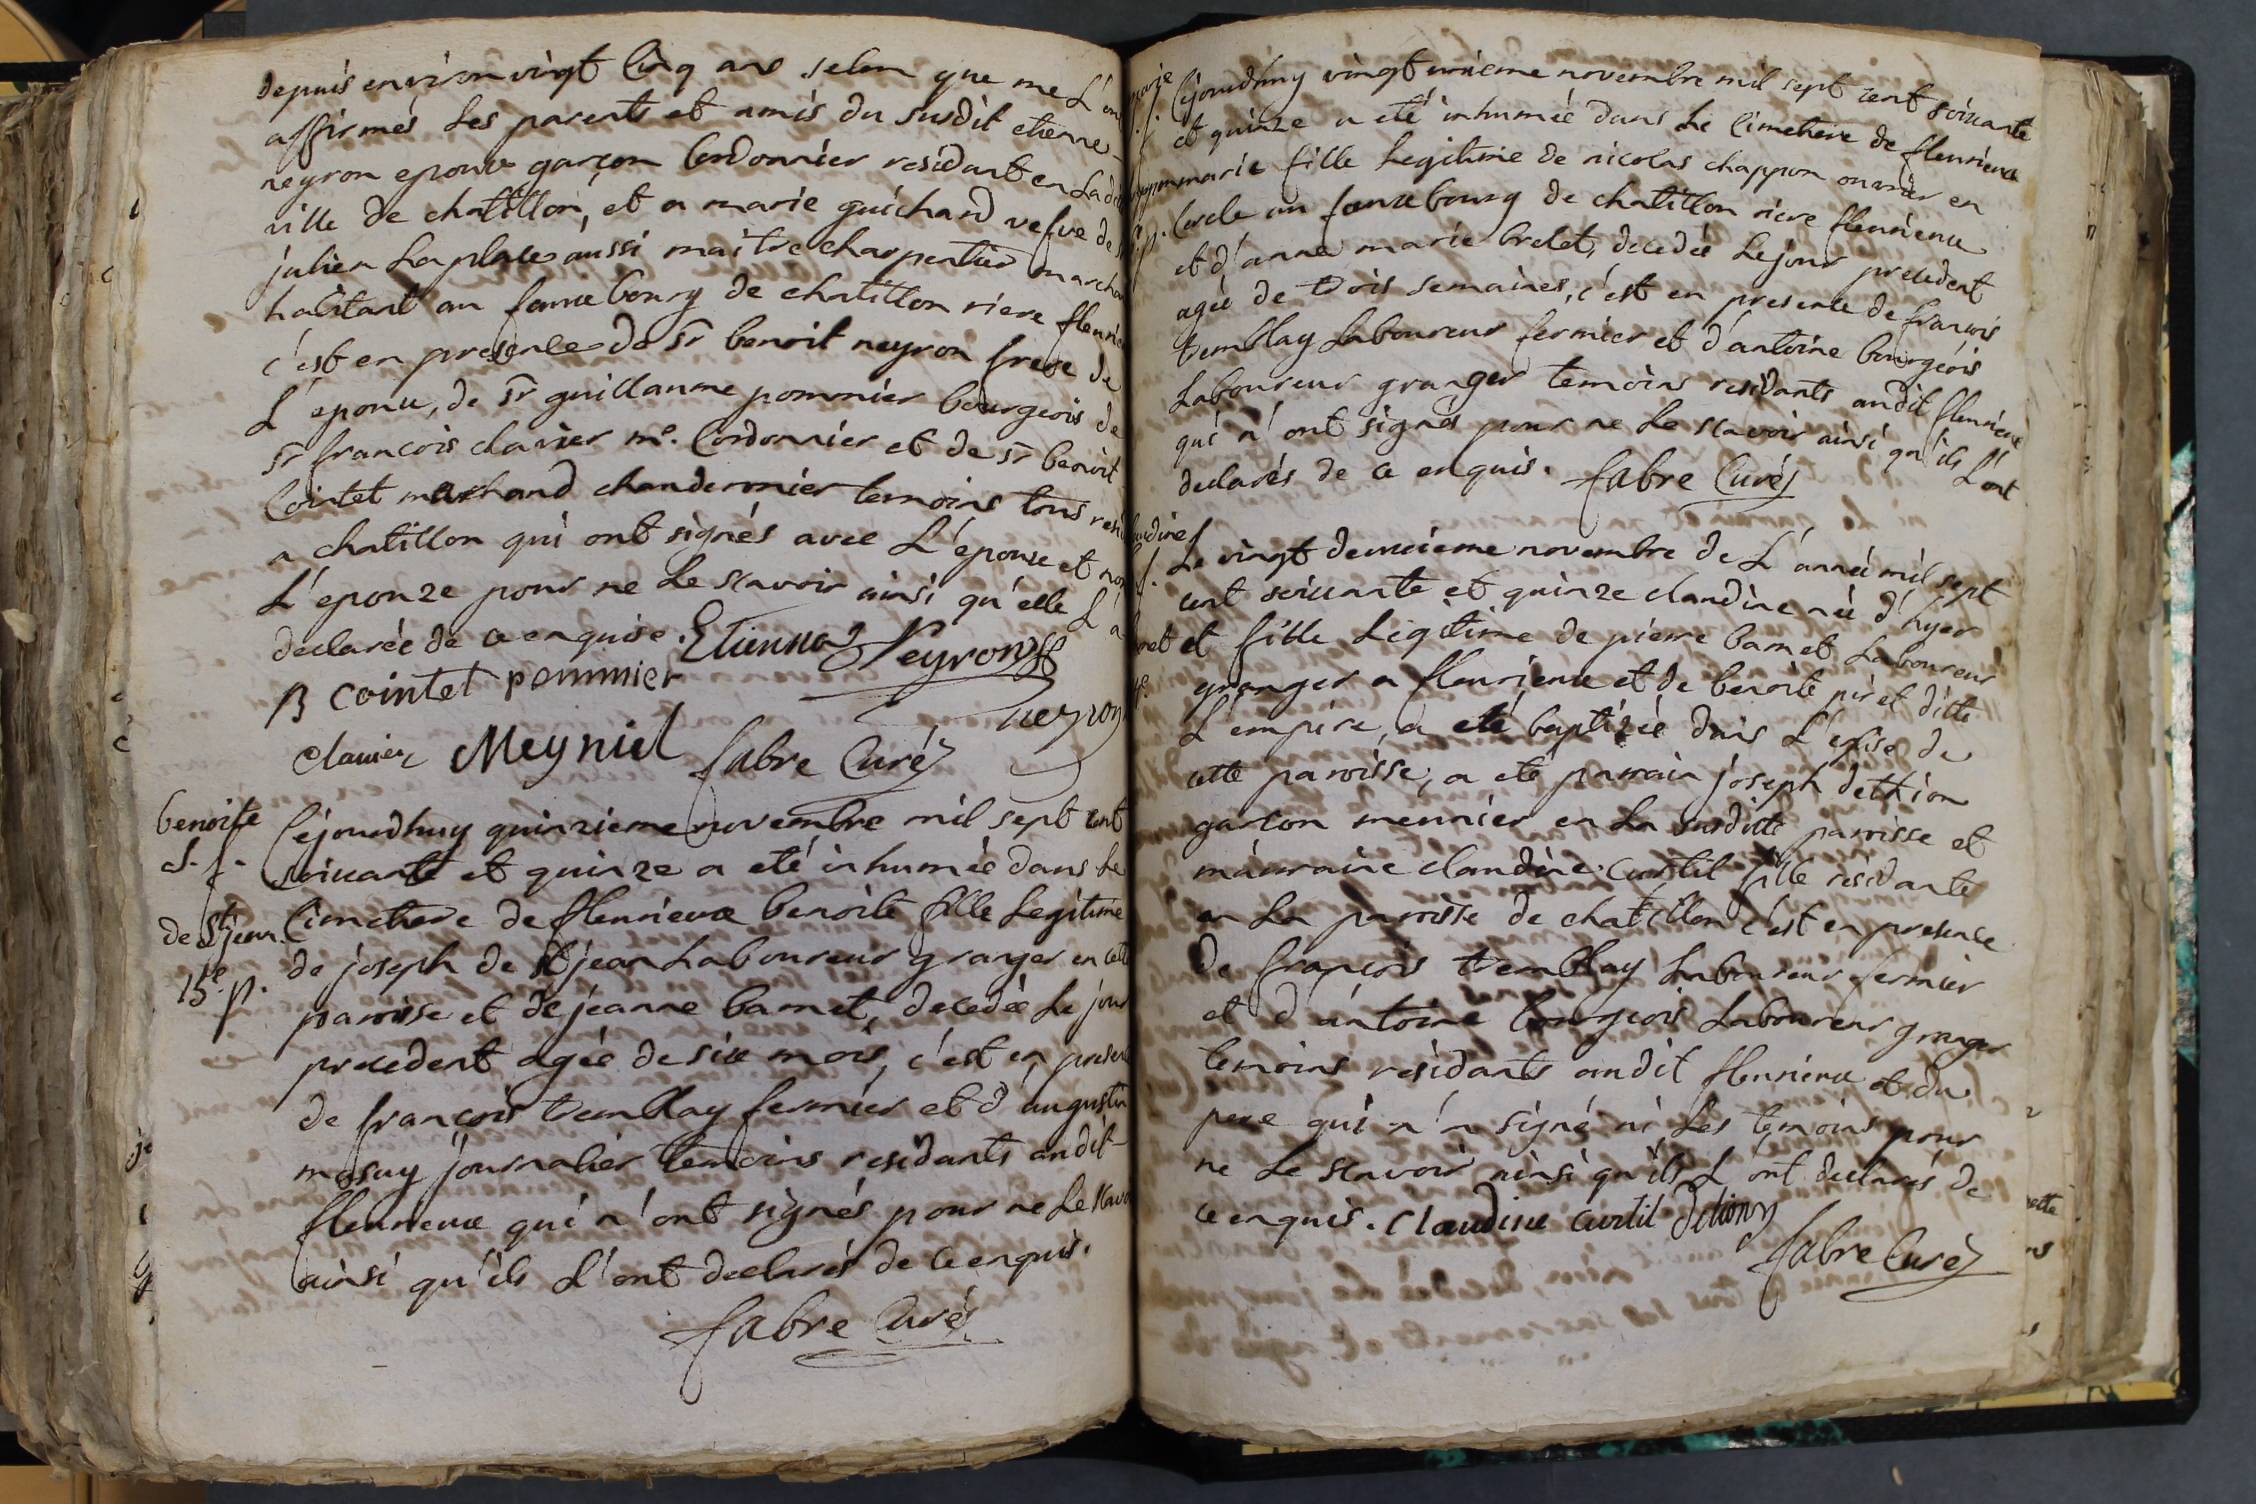 depuis environ vingt cinq ans selon que me L'ont
affirmés Les parents et amis du susdit etienne
neyron epoux garçon Cordonnier residant en Ladite
ville de chatillon, et a marie guichard vefve de sr
julien Laplace aussi maitre charpentier marchand
habitant au fauxbourg de chatillon riere fleurieux
c'est en presence de sr benoit neyron frere de
L'epoux, de sr guillaume pommier bourgeois de
sr francois clavier me. Cordonnier et de sr benoit
Cointet marchand chauderonnier temoins tous resid
a chatillon qui ont signés avec L'epoux et non
L'epouze pour ne Le scavoir ainsi qu'elle L'a
declarée de ce enquise. Etienne Neyron
B cointet pommier
neyron
clavier Meyniel fabre Curé
benoite
L. f.
de St jean
15e p.
Cejourdhuy quinzieme novembre mil sept cent
soixante et quinze a eté inhumée dans Le
Cimetiere de fleurieux benoite fille Legitime
de joseph de St jean Laboureur granger en cette
paroisse et de jeanne bamet, decedée Le jour
precedent agée de six mois, c'est en presence
de francois tremblay fermier et d'augustin
mosuy journalier temoins residants audit
fleurieux qui n'ont signés pour ne Le scavoir
ainsi qu'ils L'ont declarés de ce enquis.
fabre Curé
marie
Cejourdhuy vingt unieme novembre mil sept cent soixante
et quinze a eté inhumée dans Le Cimetiere de fleurieux
marie fille Legitime de nicolas chappon ouvrier en
Cercle au fauxbourg de chatillon riere fleurieux
et d'anne marie brelet, decedée Le jour precedent
agée de trois semaines, c'est en presence de françois
tremblay Laboureur fermier et d'antoine bourgeois
Laboureur granger temoins residants audit fleurieux
qui n'ont signés pour ne Le scavoir ainsi qu'ils L'ont
declarés de ce enquis. fabre Curé
Le vingt deuxieme novembre de L'année mil sept
cent soixante et quinze claudine née d'hyer
et fille Legitime de pierre bamet Laboureur
granger a fleurieux et de benoite piret ditte
L'empire, a eté baptizée dans L'eglise de
cette paroisse; a eté parrain joseph dethion
garcon meunier en La susditte paroisse et
maurraine claudine curtil fille residante
en La paroisse de chatillon c'est en presence
de françois tremblay Laboureur fermier
et d'antoine bourgeois Laboureur granger
temoins residants audit fleurieux et du
pere qui n'a signé ni Les temoins pour
ne Le scavoir ainsi qu'ils L'ont declarés de
ce enquis. Claudine curtil Detiony
fabre Curé